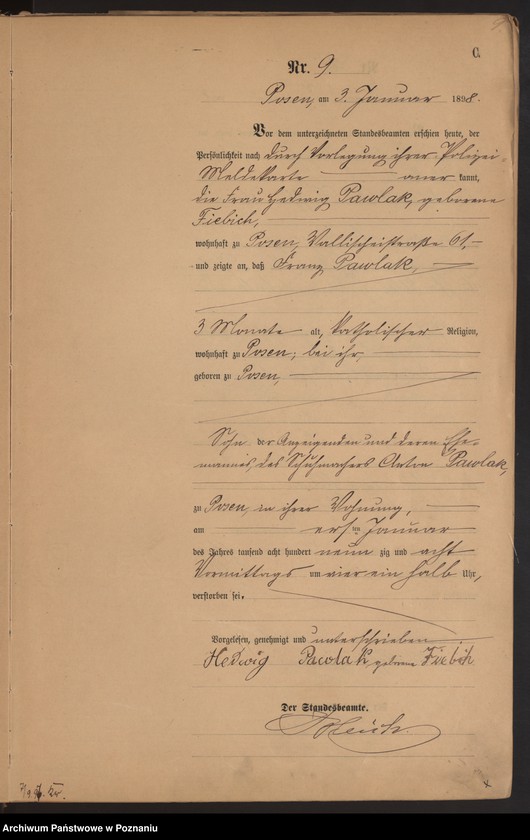 C.
Nr. 9.
Posen, am 3. Januar 1898.
Vor dem unterzeichneten Standesbeamten erschien heute, der
Persönlichkeit nach durch Vorlegung ihrer Polizei-
Meldekarte anerkannt,
die Frau Hedwig Pawlak, geborene
Fiebich,
wohnhaft zu Posen, Wallischeistraße 61,
und zeigte an, daß Franz Pawlak,
3 Monate alt, katholischer Religion,
wohnhaft zu Posen, bei ihr,
geboren zu Posen,
Sohn der Anzeigenden und deren Ehe-
mannes, des Schuhmachers Anton Pawlak,
zu Posen, in ihrer Wohnung,
am ersten Januar
des Jahres tausend acht hundert neun zig und acht
Vormittags um vier ein halb Uhr,
verstorben sei.
Vorgelesen, genehmigt und unterschrieben
Hedwig Pawlak geborene Fiebich
Der Standesbeamte.
Archiwum Państwowe w Poznaniu